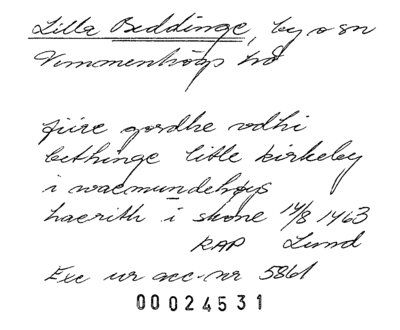 Lilla Beddinge, by o sn
Vemmenhögs hd
fiire gordhe vdhi
bethinge litle kirkeby
i waemundehøys
haerith i skone 14/8 1463
RAP Lund
Exc ur acc-nr 5861
00024531